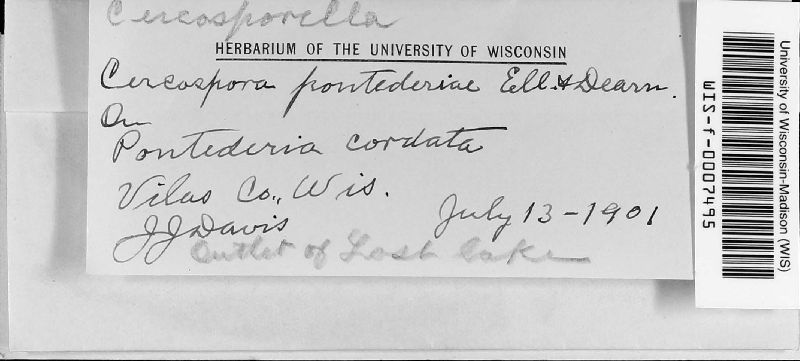 Cercosporella
HERBARIUM OF THE UNIVERSITY OF WISCONSIN
Cercospora pontederiae Ell. & Dearn.
On
Pontederia cordata
Vilas Co., Wis.
JJDavis July 13-1901
Outlet of Lost Lake
University of Wisconsin-Madison (WIS)
WIS-f-0007495